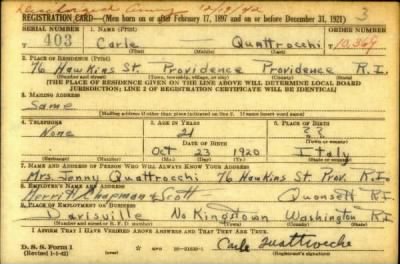 Discharged Army 12/19/42
3
REGISTRATION CARD—(Men born on or after February 17, 1897 and on or before December 31, 1921)
SERIAL NUMBER 1. NAME (Print) ORDER NUMBER
403 Carle Quattrocchi 10,369
(First) (Middle) (Last)
2. PLACE OF RESIDENCE (Print)
76 Hawkins St. Providence Providence R.I.
(Number and street) (Town, township, village, or city) (County) (State)
[THE PLACE OF RESIDENCE GIVEN ON THE LINE ABOVE WILL DETERMINE LOCAL BOARD
JURISDICTION; LINE 2 OF REGISTRATION CERTIFICATE WILL BE IDENTICAL]
3. MAILING ADDRESS
Same
[Mailing address if other than place indicated on line 2. If same insert word same]
4. TELEPHONE 5. AGE IN YEARS 6. PLACE OF BIRTH
None 21 ??
DATE OF BIRTH (Town or county)
Oct 23 1920 Italy
(Exchange) (Number) (Mo.) (Day) (Yr.) (State or country)
7. NAME AND ADDRESS OF PERSON WHO WILL ALWAYS KNOW YOUR ADDRESS
Mrs. Jenny Quattrocchi 76 Hawkins St. Prov. R.I.
8. EMPLOYER'S NAME AND ADDRESS
Merritt Chapman & Scott Quonsett R.I.
9. PLACE OF EMPLOYMENT OR BUSINESS
Davisville No Kingstown Washington R.I.
(Number and street or R. F. D. number) (Town) (County) (State)
I AFFIRM THAT I HAVE VERIFIED ABOVE ANSWERS AND THAT THEY ARE TRUE.
D. S. S. Form 1
(Revised 1-1-42) (Registrant's signature)